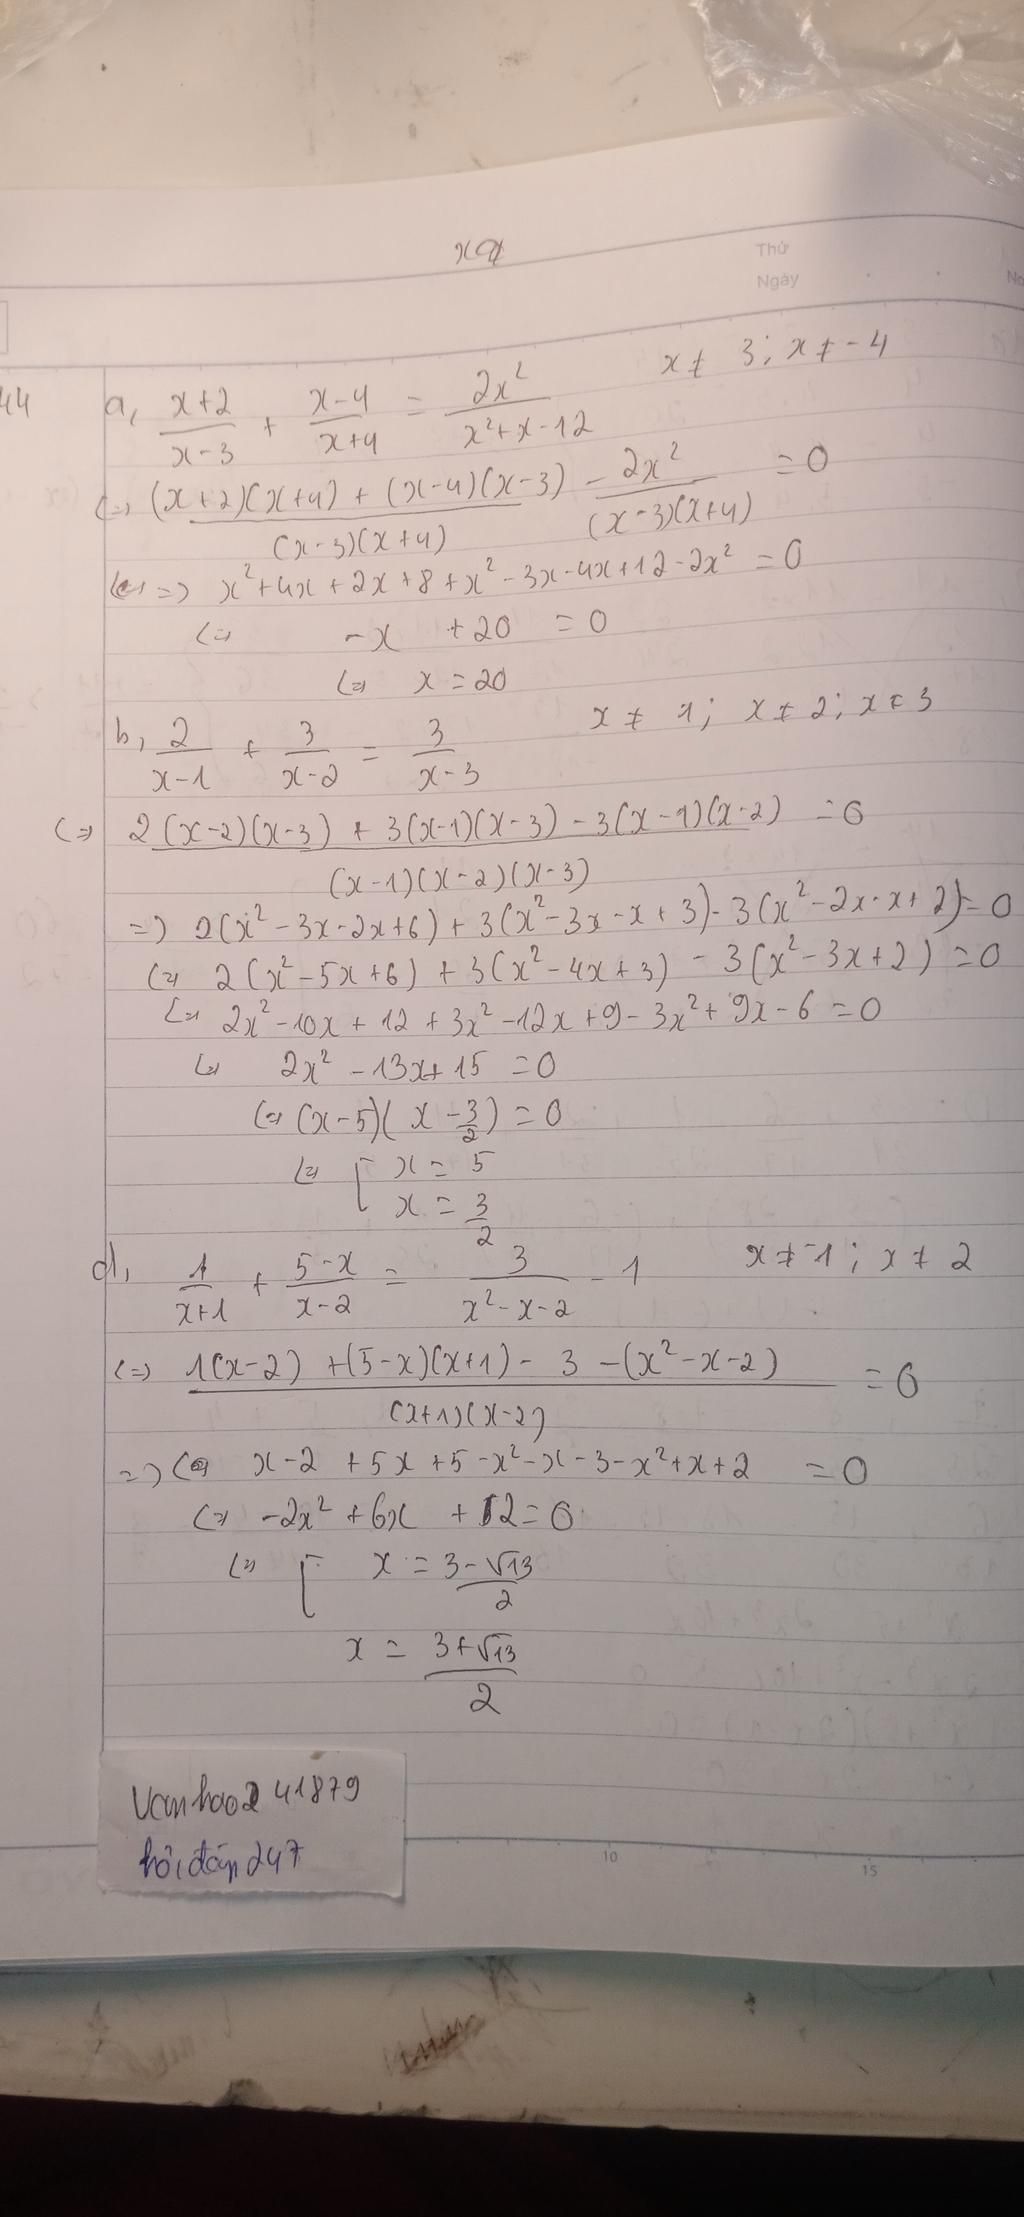 Thứ
Ngày
No
44 a, \frac{x+2}{x-3} + \frac{x-4}{x+4} = \frac{2x^2}{x^2+x-12} x ≠ 3; x ≠ -4
<=> \frac{(x+2)(x+4) + (x-4)(x-3)}{(x-3)(x+4)} - \frac{2x^2}{(x-3)(x+4)} = 0
=> x^2+4x+2x+8+x^2-3x-4x+12-2x^2 = 0
<=> -x +20 = 0
<=> x = 20
b, \frac{2}{x-1} + \frac{3}{x-2} = \frac{3}{x-3} x ≠ 1; x ≠ 2; x ≠ 3
<=> \frac{2(x-2)(x-3) + 3(x-1)(x-3) - 3(x-1)(x-2)}{(x-1)(x-2)(x-3)} = 0
=> 2(x^2-3x-2x+6) + 3(x^2-3x-x+3) - 3(x^2-2x-x+2) = 0
<=> 2(x^2-5x+6) + 3(x^2-4x+3) - 3(x^2-3x+2) = 0
<=> 2x^2-10x+12+3x^2-12x+9-3x^2+9x-6 = 0
<=> 2x^2-13x+15 = 0
<=> (x-5)(x-\frac{3}{2}) = 0
<=> [ x = 5
x = \frac{3}{2}
d, \frac{1}{x+1} + \frac{5-x}{x-2} = \frac{3}{x^2-x-2} - 1 x ≠ -1; x ≠ 2
<=> \frac{1(x-2) + (5-x)(x+1) - 3 - (x^2-x-2)}{(x+1)(x-2)} = 0
=> x-2+5x+5-x^2-x-3-x^2+x+2 = 0
<=> -2x^2+6x+2 = 0
<=> [ x = \frac{3-\sqrt{13}}{2}
x = \frac{3+\sqrt{13}}{2}
Vanhao241879
hỏi đáp 247
10
15